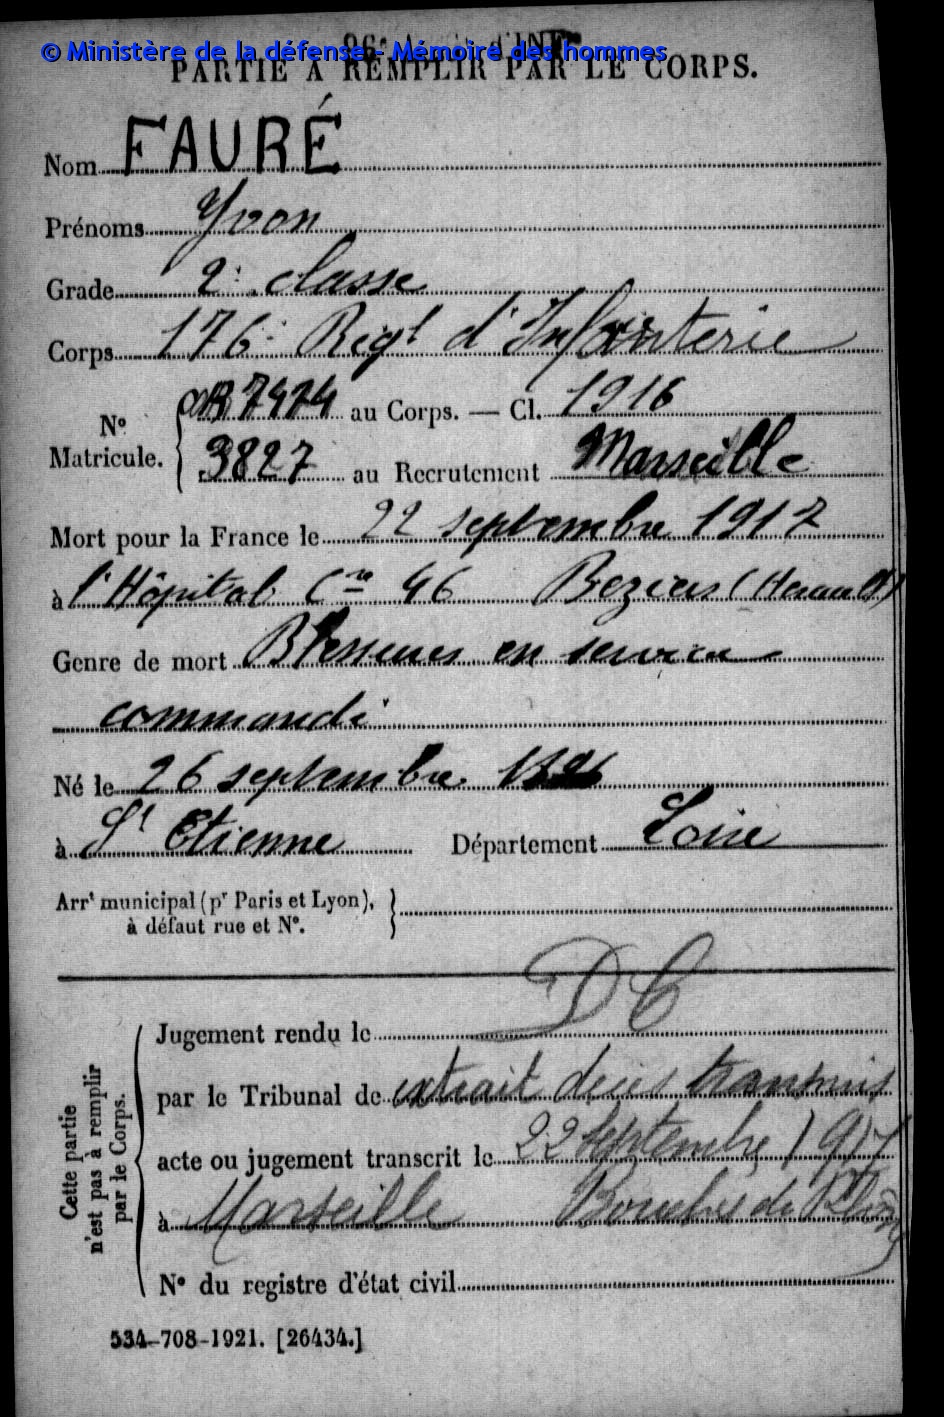 © Ministère de la défense - Mémoire des hommes
PARTIE À REMPLIR PAR LE CORPS.
Nom FAURÉ
Prénoms Yvon
Grade 2e classe
Corps 176e Regt d'Infanterie
No Matricule. { 7474 au Corps. — Cl. 1916
3827 au Recrutement Marseille
Mort pour la France le 22 septembre 1917
à l'Hôpital Cre 46 Beziers (Herault)
Genre de mort Blessures en service
commandé
Né le 26 septembre
à St Etienne Département Loire
Arrt municipal (pr Paris et Lyon), }
à défaut rue et No.
DC
Cette partie n'est pas à remplir par le Corps.
Jugement rendu le
par le Tribunal de extrait décès transmis
acte ou jugement transcrit le 22 Septembre 1917
à Marseille Bouches du Rhône
No du registre d'état civil
534-708-1921. [26434.]